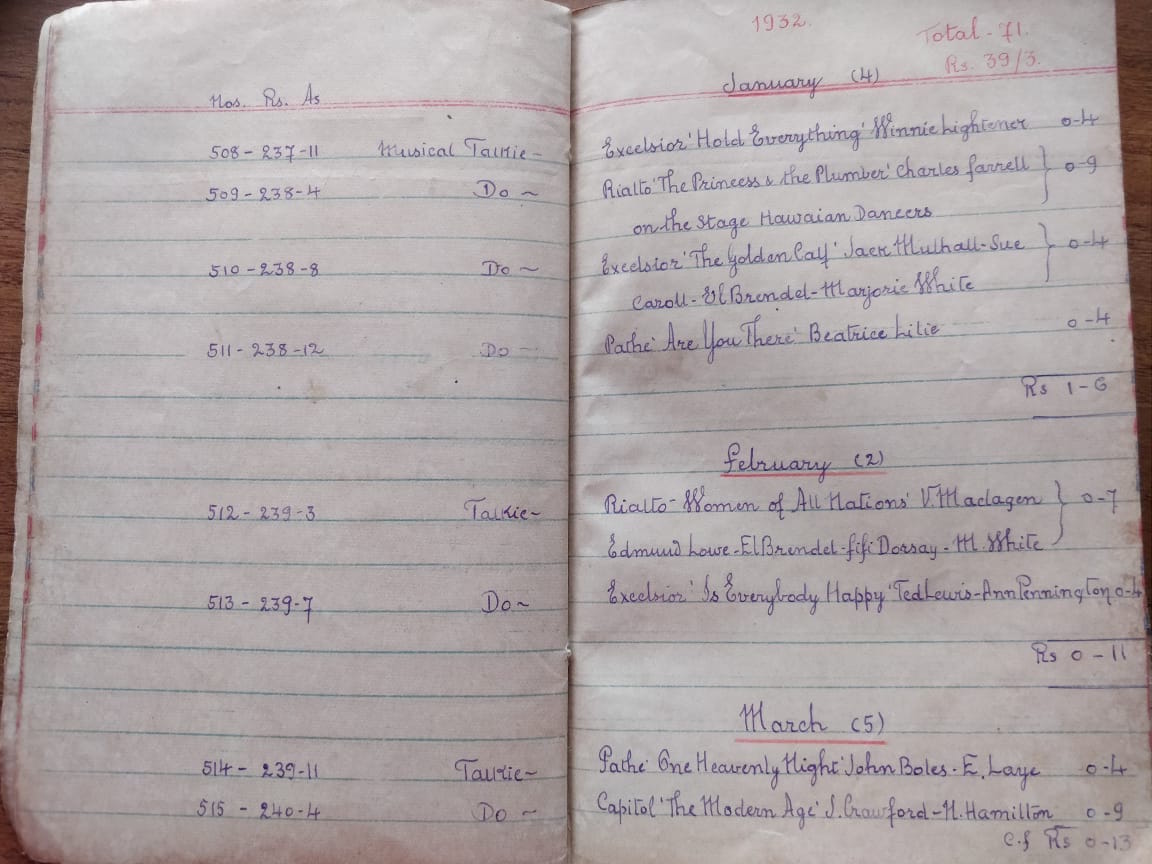 Nos. Rs. As
508 - 237-11 Musical Talkie -
509 - 238-4 Do ~
510 - 238-8 Do ~
511 - 238-12 Do ~
512 - 239-3 Talkie ~
513 - 239-7 Do ~
514 - 239-11 Talkie ~
515 - 240-4 Do ~
1932.
Total - 71.
Rs. 39/3.
January (4)
Excelsior 'Hold Everything' Winnie Lightener 0-4
Rialto 'The Princess & the Plumber' Charles Farrell } 0-9
on the Stage Hawaian Dancers
Excelsior 'The Golden Calf' Jack Mulhall - Sue } 0-4
Caroll - El Brendel - Marjorie White
Pathe 'Are You There' Beatrice Lilie 0-4
Rs 1-6
February (2)
Rialto - Women of All Nations' V. Maclagen } 0-7
Edmund Lowe - El Brendel - Fifi Dorsay - M. White
Excelsior 'Is Everybody Happy' Ted Lewis - Ann Pennington 0-4
Rs 0-11
March (5)
Pathe 'One Heavenly Night' John Boles - E. Laye 0-4
Capitol 'The Modern Age' J. Crawford - N. Hamilton 0-9
C.f Rs 0-13